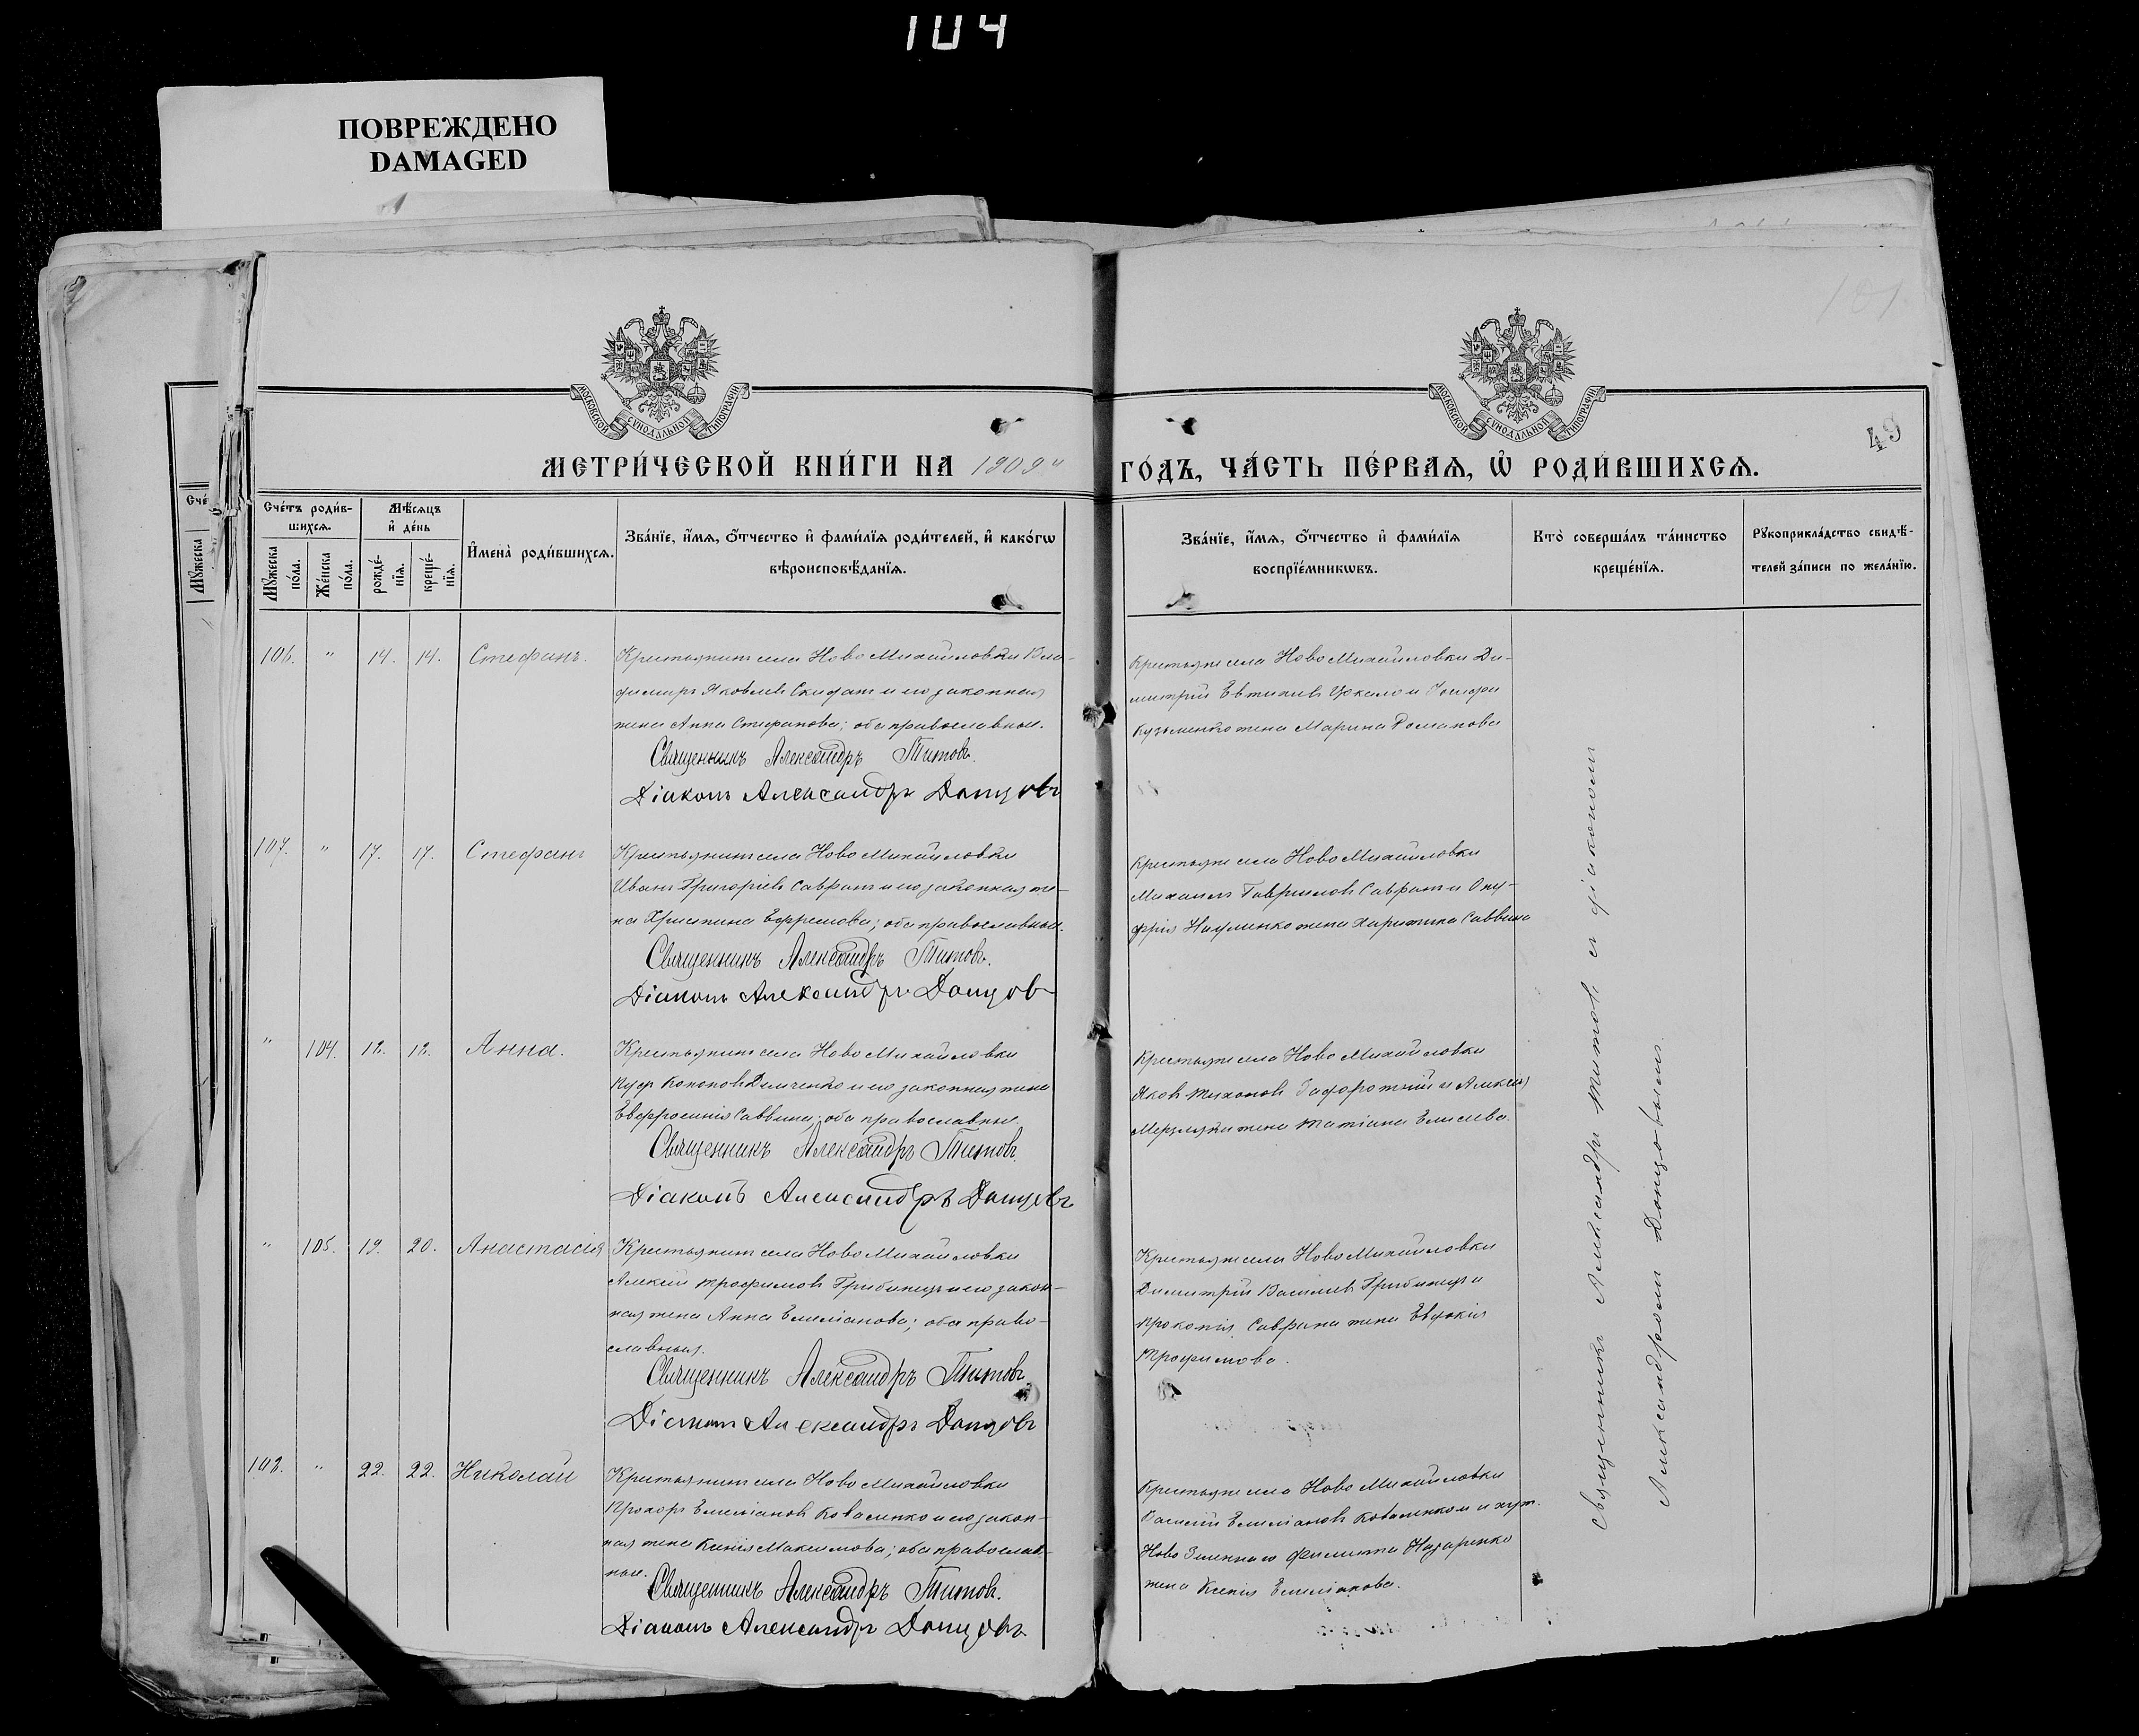 104
ПОВРЕЖДЕНО
DAMAGED
101
49
МОСКОВСКОЙ СѴНОДАЛЬНОЙ ТИПОГРАФІИ
МОСКОВСКОЙ СѴНОДАЛЬНОЙ ТИПОГРАФІИ
МЕТРИ́ЧЕСКОЙ КНИ́ГИ НА 1909 ГО́ДЪ, ЧА́СТЬ ПЕ́РВАѦ, Ѡ҆ РОДИ́ВШИХСѦ.
Сче́
Мꙋжеска
Сче́тъ роди́в-
шихсѧ.
Мꙋжеска по́ла.
Же́нска по́ла.
Мѣ́сѧцъ и҆ де́нь
рожде́-
нїѧ.
креще́-
нїѧ.
И҆мена̀ роди́вшихсѧ.
Зва́нїе, и҆́мѧ, ѻ҆́тчество и҆ фами́лїѧ роди́телей, и҆ како́гѡ
вѣроисповѣ́данїѧ.
Зва́нїе, и҆́мѧ, ѻ҆́тчество и҆ фами́лїѧ
воспрїе́мникѡвъ.
Кто̀ соверша́лъ та́инство
креще́нїѧ.
Рꙋкоприкла́дство свидѣ́-
телей за́писи по жела́нїю.
106. " 14. 14. Стефанъ.
Крестьянинъ села Ново Михайловки Вла-
димиръ Яковлевъ Скидан и его законная
жена Анна Стефанова; оба православные.
Священникъ Александръ Титовъ.
Діаконъ Александръ Донцовъ
Крестьяне села Ново Михайловки Ди-
митрій Евтихіевъ Цокало и
Кузьменко жена Марина Романова
107. " 17. 17. Стефанъ
Крестьянинъ села Ново Михайловки
Иванъ Григоріевъ Савранъ и его законная же-
на Христина Ефремова; оба православные.
Священникъ Александръ Титовъ.
Діаконъ Александръ Донцовъ
Крестьяне села Ново Михайловки
Михаилъ Гавриловъ Савранъ и Ону-
фрія Науменко жена Харитина Саввина
" 104. 18. 18. Анна.
Крестьянинъ села Ново Михайловки
Кононовъ Демченко и его законная жена
Евфросинія Саввина; оба православные.
Священникъ Александръ Титовъ.
Діаконъ Александръ Донцовъ
Крестьяне села Ново Михайловки
Яковъ Тихоновъ Задорожній и Алексія
Мерзляки жена Татіана Елисеева.
" 105. 19. 20. Анастасія
Крестьянинъ села Ново Михайловки
Алексій Трофимовъ Грибинецъ и его закон-
ная жена Анна Емеліанова; оба право-
славныя.
Священникъ Александръ Титовъ
Діаконъ Александръ Донцовъ
Крестьяне села Ново Михайловки
Димитрій Василіевъ Грибинецъ и
Прокопія Саврана жена Евдокія
Трофимова.
108. " 22. 22. Николай
Крестьянинъ села Ново Михайловки
Прохоръ Емеліановъ Коваленко и его закон-
ная жена Ксенія Максимова; оба православ-
ные.
Священникъ Александръ Титовъ.
Діаконъ Александръ Донцовъ
Крестьяне села Ново Михайловки
Василій Емеліановъ Коваленко и хут.
Ново Филиппа Назаренко
жена Ксенія Емеліанова.
Священникъ Александръ Титовъ съ діакономъ
Александромъ Донцовымъ.